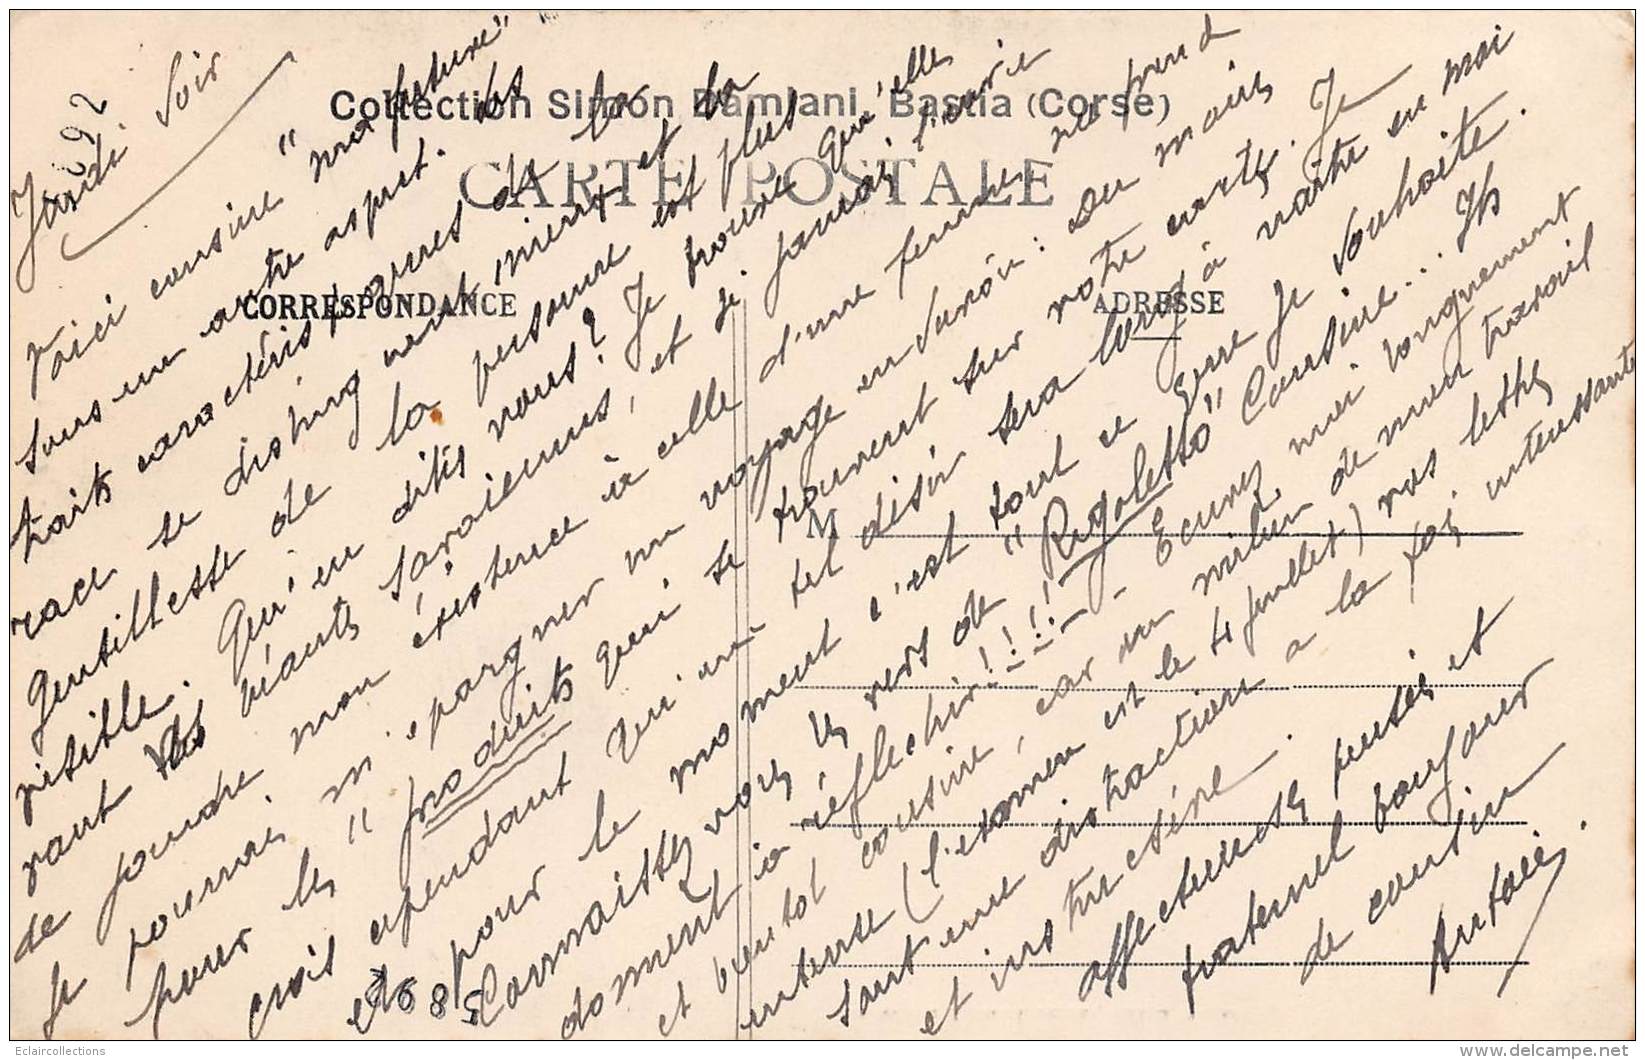 Collection Simon Damiani, Bastia (Corse)
CARTE POSTALE
CORRESPONDANCE
ADRESSE
M
Jeudi Soir
Voici cousine "ma future"
sous un autre aspect. Les
traits caractéristiques de la
race se distinguent mieux et la
gentillesse de la personne est plus
visible. Qu'en dites vous? Je trouve qu'elle
vaut
de joindre mon existence à celle d'une femme
Je pourrai m'épargner un voyage en Savoie: Du moins
pour les "produits qui se trouvent sur votre carte. Je
crois cependant qu'un tel désir sera long à naître en moi
et pour le moment c'est tout ce que Je souhaite.
Connaissez vous les vers de "Rigoletto" Cousine... Ils
donnent à réfléchir!!!! - Ecrivez moi longuement
et bientôt cousine, car au milieu de mon travail
intense (l'examen est le 4 Juillet) vos lettres
sont une distraction à la fois intéressante
et instructive.
affectueuses pensées et
fraternel bonjour
de cousin
Antoine.
5892
Eclaircollections
delcampe.net